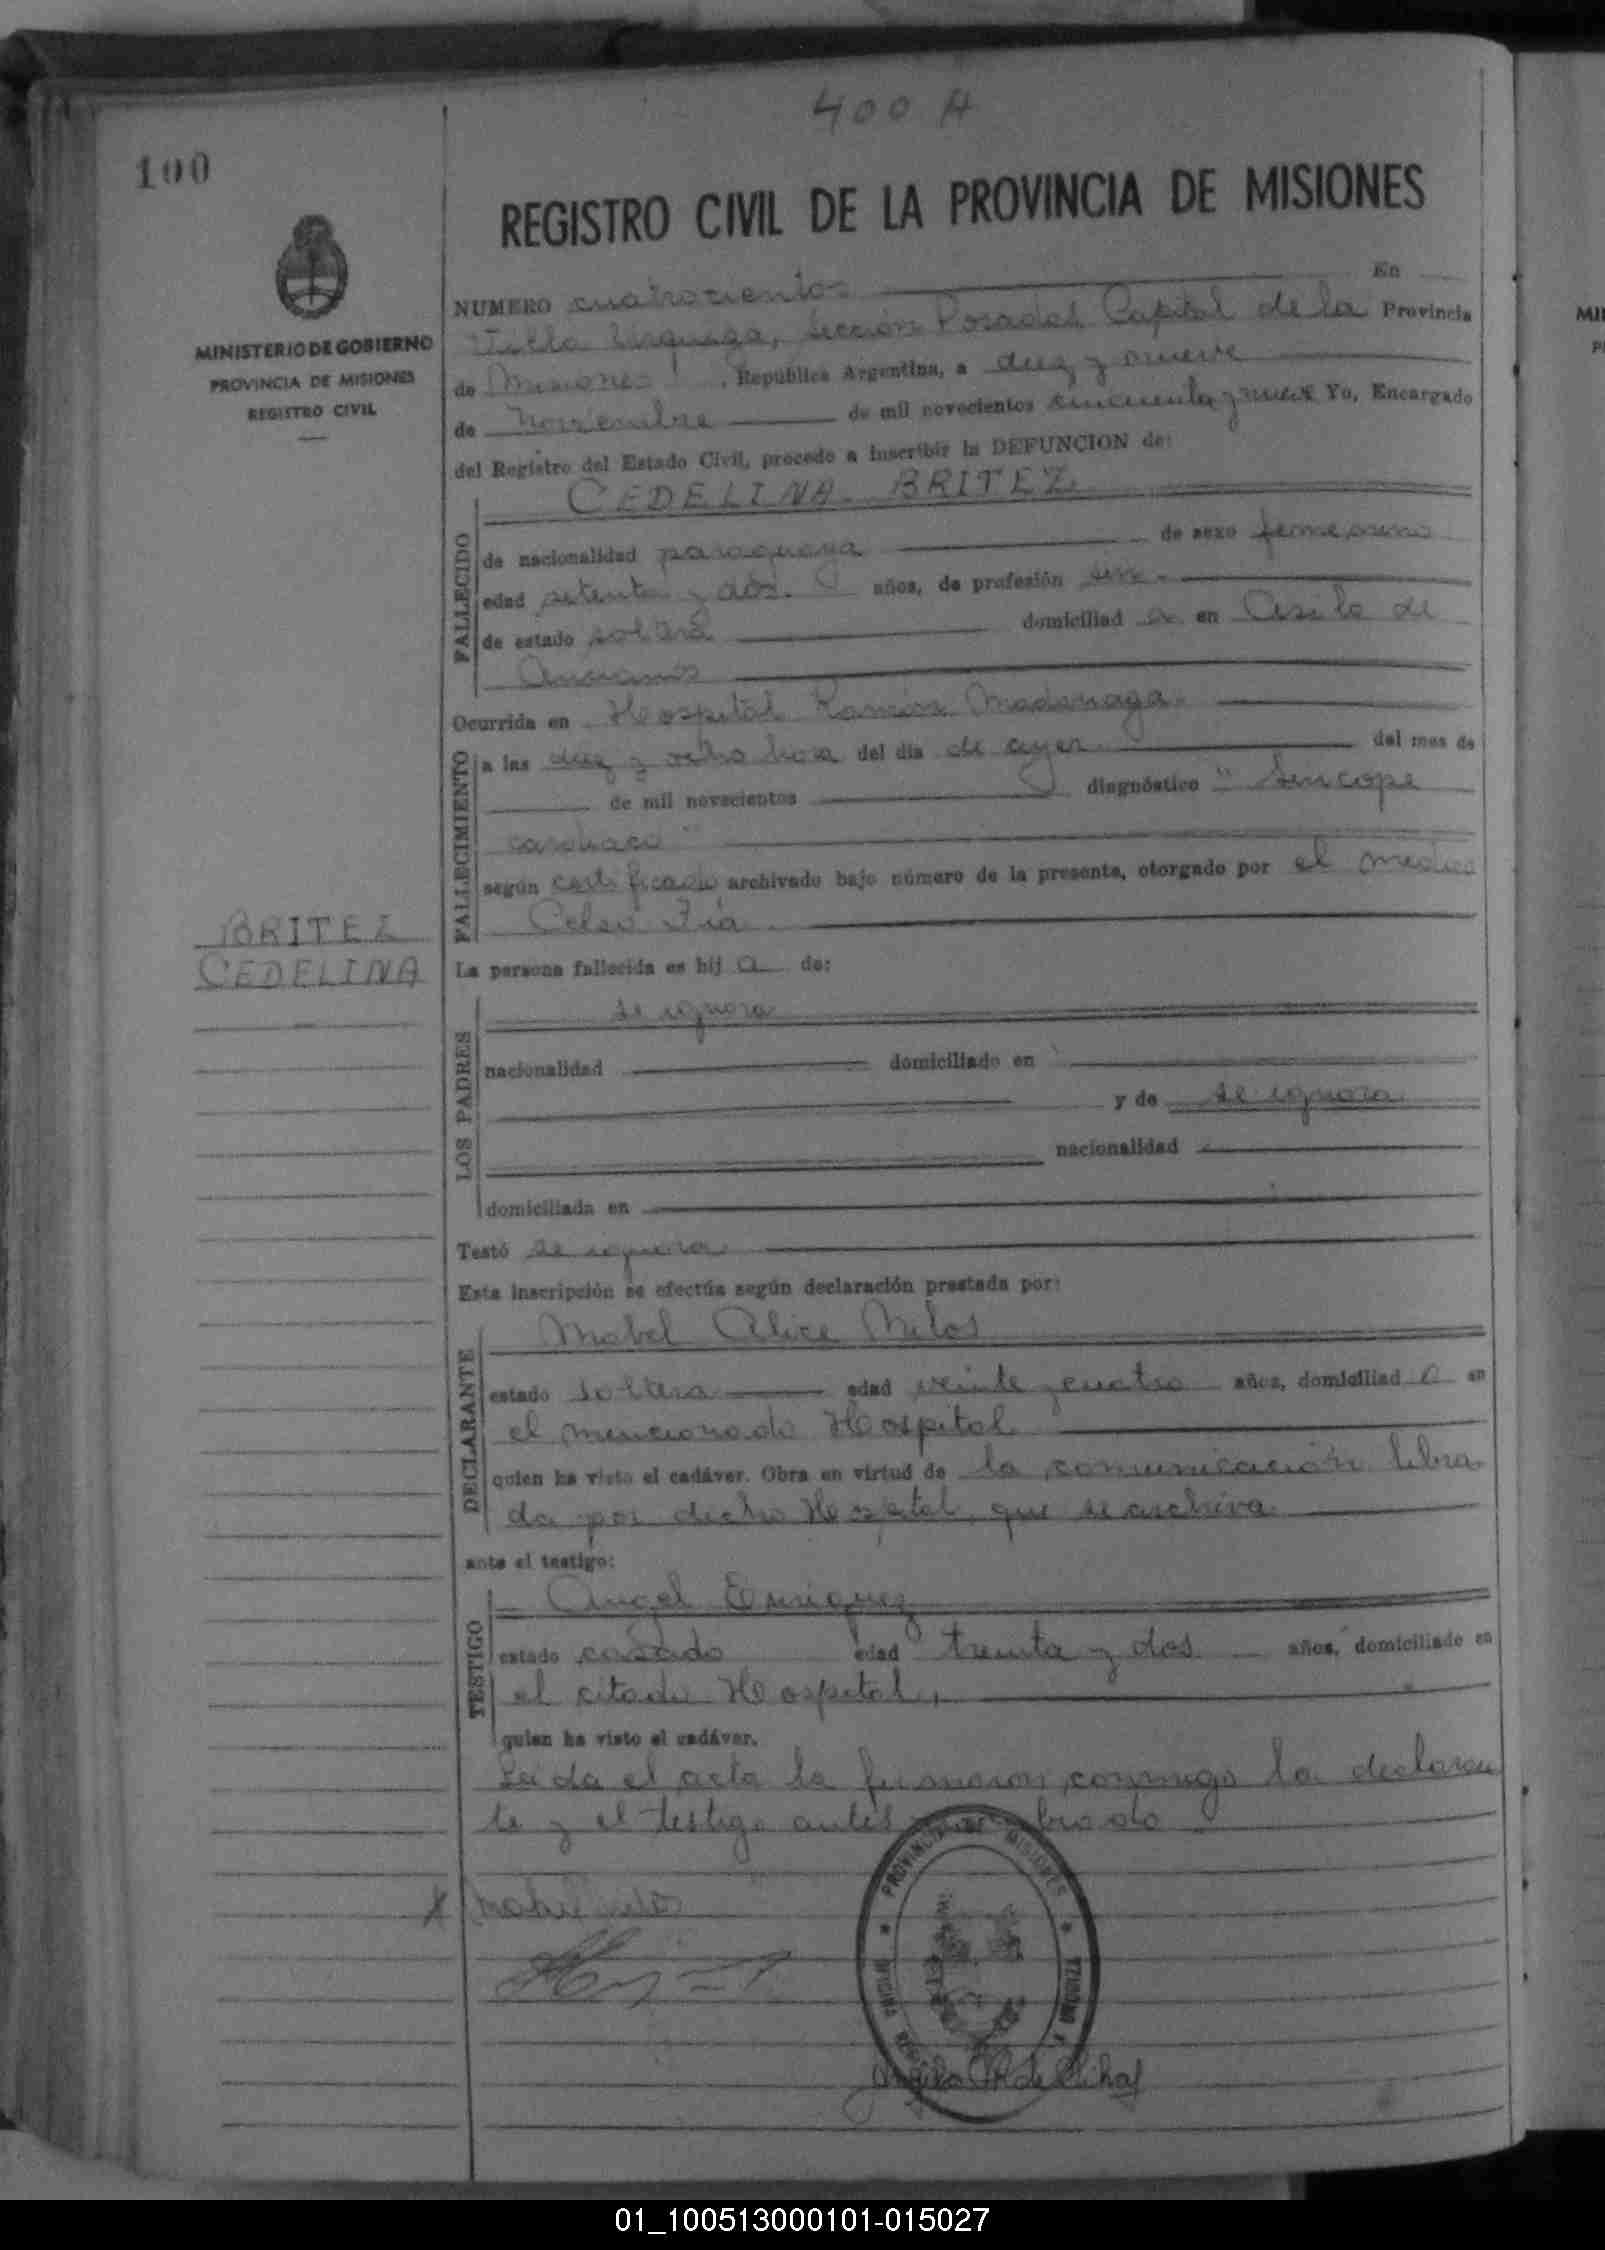 400 A
100
REGISTRO CIVIL DE LA PROVINCIA DE MISIONES
MINISTERIO DE GOBIERNO
PROVINCIA DE MISIONES
REGISTRO CIVIL
NUMERO cuatrocientos En
Villa Urquiza, sección Posadas Capital de la Provincia
de Misiones, República Argentina, a diez y nueve
de Noviembre de mil novecientos cincuenta y nueve Yo, Encargado
del Registro del Estado Civil, procedo a inscribir la DEFUNCION de:
CEDELINA BRITEZ
FALLECIDO
de nacionalidad paraguaya de sexo femenino
edad setenta y dos años, de profesión sin
de estado soltera domiciliad a en Asilo de
Ancianos
Ocurrida en Hospital Ramón Madariaga
FALLECIMIENTO
a las diez y ocho hora del día de ayer del mes de
de mil novecientos diagnóstico "Sincope
cardiaco"
según certificado archivado bajo número de la presente, otorgado por el medico
Celso
BRITEZ
CEDELINA
La persona fallecida es hij a de:
LOS PADRES
se ignora
nacionalidad domiciliado en
y de se ignora
nacionalidad
domiciliada en
Testó se ignora
Esta inscripción se efectúa según declaración prestada por:
DECLARANTE
Mabel Alice Melos
estado soltera edad veinte y cuatro años, domiciliad a en
el mencionado Hospital
quien ha visto el cadáver. Obra en virtud de la comunicación libra
da por dicho Hospital, que se archiva
ante el testigo:
TESTIGO
Angel Enriquez
estado casado edad treinta y dos años, domiciliado en
el citado Hospital,
quien ha visto el cadáver.
Leida el acta la firmaron conmigo la declaran
te y el testigo antes brado
PROVINCIA DE MISIONES
01_100513000101-015027